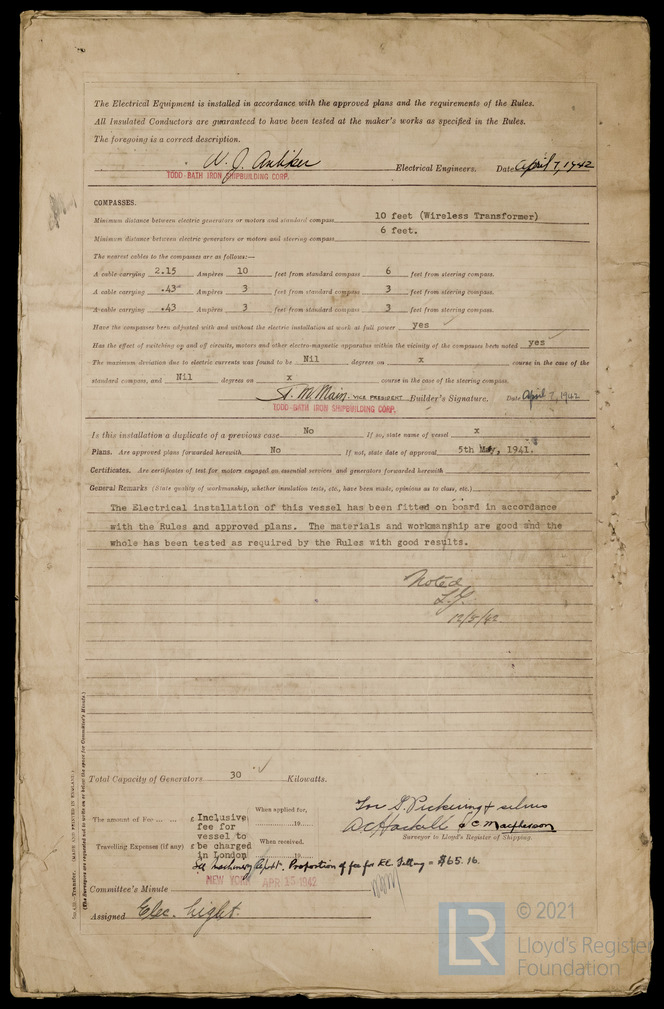 The Electrical Equipment is installed in accordance with the approved plans and the requirements of the Rules.
All Insulated Conductors are guaranteed to have been tested at the maker's works as specified in the Rules.
The foregoing is a correct description.
W. J. Electrical Engineers. Date April 7, 1942
TODD-BATH IRON SHIPBUILDING CORP.
COMPASSES.
Minimum distance between electric generators or motors and standard compass 10 feet (Wireless Transformer)
Minimum distance between electric generators or motors and steering compass 6 feet.
The nearest cables to the compasses are as follows:—
A cable carrying 2.15 Ampères 10 feet from standard compass 6 feet from steering compass.
A cable carrying .43 Ampères 3 feet from standard compass 3 feet from steering compass.
A cable carrying .43 Ampères 3 feet from standard compass 3 feet from steering compass.
Have the compasses been adjusted with and without the electric installation at work at full power yes
Has the effect of switching on and off circuits, motors and other electro-magnetic apparatus within the vicinity of the compasses been noted yes
The maximum deviation due to electric currents was found to be Nil degrees on x course in the case of the
standard compass, and Nil degrees on x course in the case of the steering compass.
Main, VICE PRESIDENT Builder's Signature. Date April 7, 1942
TODD-BATH IRON SHIPBUILDING CORP.
Is this installation a duplicate of a previous case No If so, state name of vessel x
Plans. Are approved plans forwarded herewith No If not, state date of approval 5th May, 1941.
Certificates. Are certificates of test for motors engaged on essential services and generators forwarded herewith
General Remarks (State quality of workmanship, whether insulation tests, etc., have been made, opinions as to class, etc.)
The Electrical installation of this vessel has been fitted on board in accordance
with the Rules and approved plans. The materials and workmanship are good and the
whole has been tested as required by the Rules with good results.
Noted
12/5/42
Total Capacity of Generators 30 Kilowatts.
The amount of Fee ... ... £ Inclusive
fee for
vessel to
Travelling Expenses (if any) £ be charged
in London
When applied for,
19
When received.
19
For S. Pickering &
A C & C Macpherson
Surveyor to Lloyd's Register of Shipping.
See Machinery Report. Proportion of fee for El. = $65.16.
NEW YORK APR 15 1942
Committee's Minute
Assigned Elec. Light.
(MADE AND PRINTED IN ENGLAND.)
(The Surveyors are requested not to write on or below the space for Committee's Minute.)
© 2021
LR
Lloyd's Register
Foundation